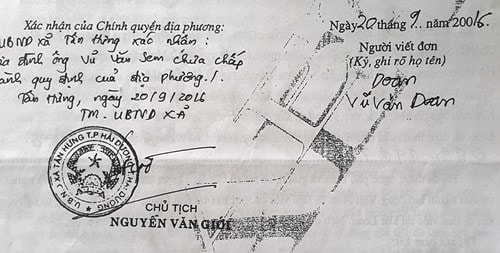 Xác nhận của Chính quyền địa phương:
UBND xã Tân Hưng xác nhận:
đình ông Vũ Văn Sem chưa chấp
hành quy định của địa phương./.
Tân Hưng, ngày 20/9/2016
TM. UBND XÃ
U.B.N.D XÃ TÂN HƯNG T.P HẢI DƯƠNG T. HẢI DƯƠNG
CHỦ TỊCH
NGUYỄN VĂN GIỚI
Ngày 20 tháng 9 năm 20016
Người viết đơn
(Ký, ghi rõ họ tên)
Doan
Vũ Văn Doan